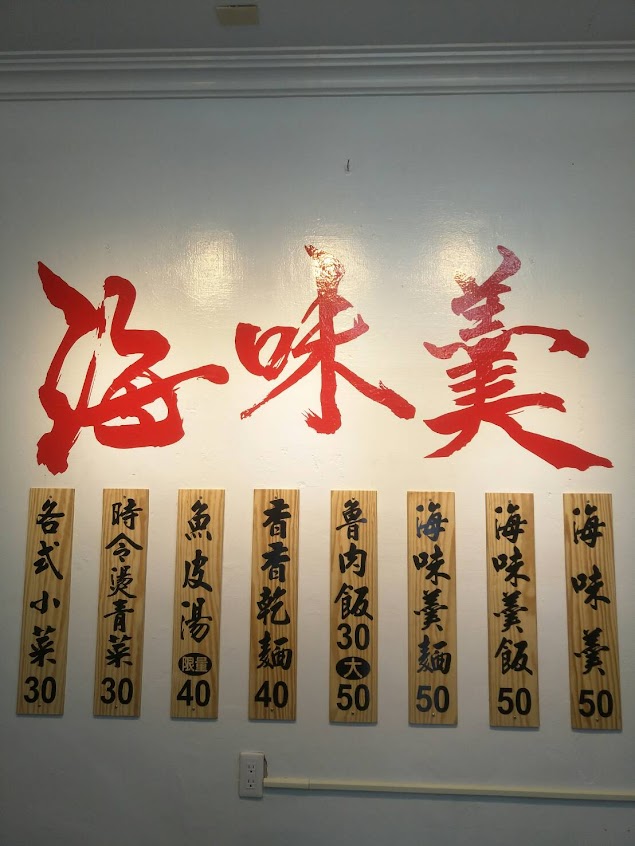 海味羹
海味羹 50
海味羹飯 50
海味羹麵 50
魯肉飯 30 大 50
香香乾麵 40
魚皮湯 限量 40
時令燙青菜 30
各式小菜 30